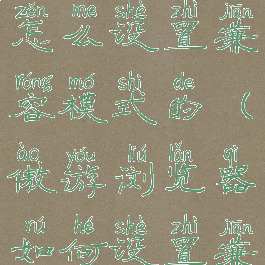 zěn me shè zhì jiān
怎么设置兼
róng mó shì de
容模式的（
ào yóu liú lǎn qì
傲游浏览器
rú hé shè zhì jiān
如何设置兼